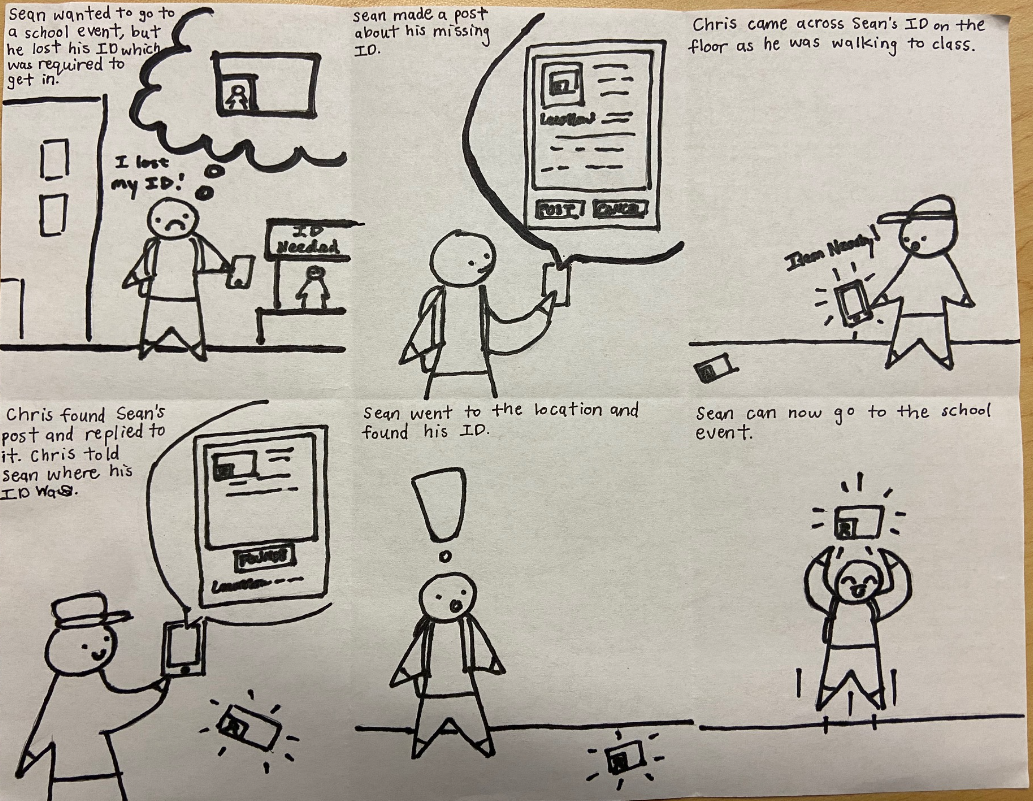 Sean wanted to go to
a school event, but
he lost his ID which
was required to
get in.
I lost
my ID!
ID
Needed
Sean made a post
about his missing
ID.
Location
POST
CANCEL
Chris came across Sean's ID on the
floor as he was walking to class.
Item Nearby!
Chris found Sean's
post and replied to
it. Chris told
Sean where his
ID was.
Location
Sean went to the location and
found his ID.
!
Sean can now go to the school
event.